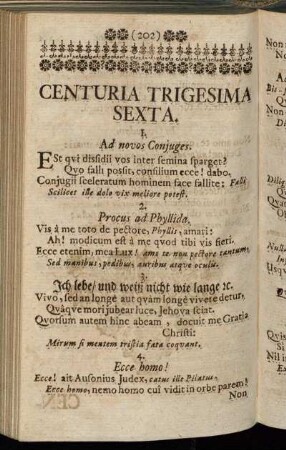 (202)
CENTURIA TRIGESIMA
SEXTA.
1.
Ad novos Conjuges.
Est qvi dissidii vos inter semina sparget?
Qvo falli possit, consilium ecce! dabo.
Conjugii sceleratum hominem face fallite: Falli
Scilicet ille dolo vix meliore potest.
2.
Procus ad Phyllida.
Vis à me toto de pectore, Phyllis, amari:
Ah! modicum est à me qvod tibi vis fieri.
Ecce etenim, mea Lux! amo te non pectore tantum,
Sed manibus, pedibus, auribus atqve oculis.
3.
Ich lebe/ und weiß nicht wie lange ꝛc.
Vivo, sed an longè aut qvàm longè vivere detur,
Qvâqve mori jubear luce, Jehova sciat.
Qvorsum autem hinc abeam, docuit me Gratia
Christi:
Mirum si mentem tristia fata coqvant.
4.
Ecce homo!
Ecce! ait Ausonius Judex, catus ille Pilatus,
Ecce homo, nemo homo cui vidit in orbe parem?
Non